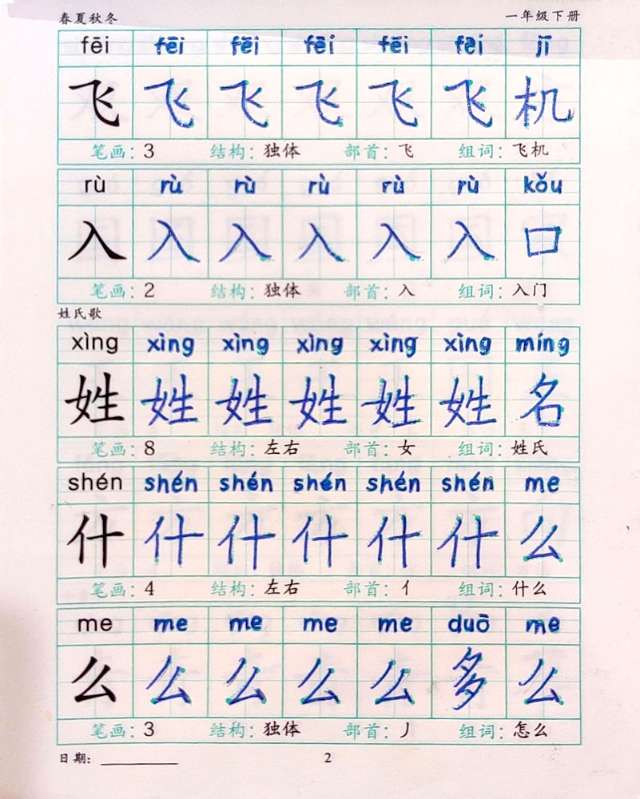 春夏秋冬 一年级下册
fēi fēi fēi fēi fēi fēi jī
飞 飞 飞 飞 飞 飞 机
笔画：3 结构：独体 部首：飞 组词：飞机
rù rù rù rù rù rù kǒu
入 入 入 入 入 入 口
笔画：2 结构：独体 部首：入 组词：入门
姓氏歌
xìng xìng xìng xìng xìng xìng míng
姓 姓 姓 姓 姓 姓 名
笔画：8 结构：左右 部首：女 组词：姓氏
shén shén shén shén shén shén me
什 什 什 什 什 什 么
笔画：4 结构：左右 部首：亻 组词：什么
me me me me me duō me
么 么 么 么 么 多 么
笔画：3 结构：独体 部首：丿 组词：怎么
日期：__________ 2